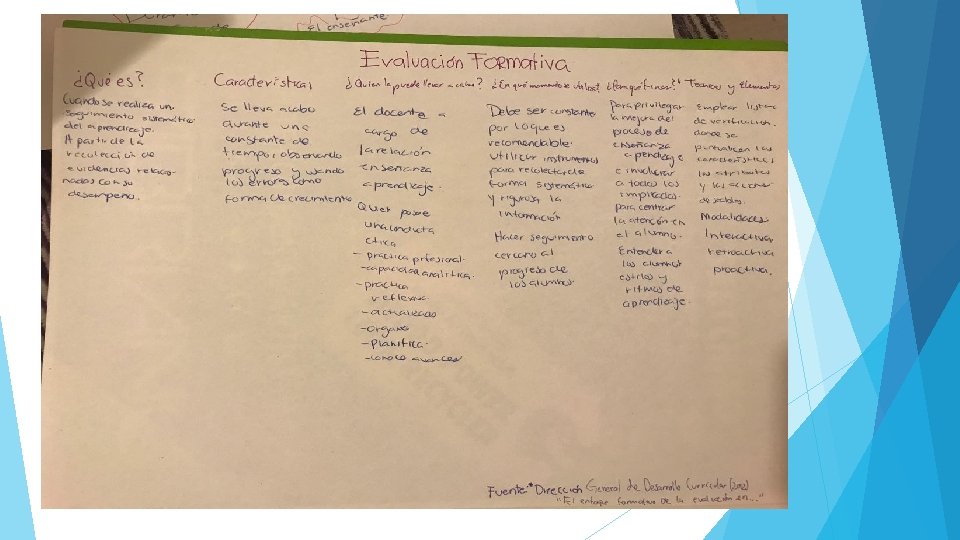 El enseñante
Evaluación Formativa
¿Qué es?
Cuando se realiza un
seguimiento sistemático
del aprendizaje.
A partir de la
recolección de
evidencias relacio-
nadas con su
desempeño.
Características
Se lleva acabo
durante una
constante de
tiempo, observando
progreso y usando
los errores como
forma de crecimiento
¿Quien la puede llevar a cabo?
El docente a
cargo de
la relación
enseñanza
aprendizaje.
Quer posee
una conducta
etica
- practica profesional.
- capacidad analitica.
- practica
reflexiva
- actualizado
- organo
- planifica.
- conoce avances
¿En qué momento se utiliza?
Debe ser constante
por lo que es
recomendable
utilizar instrumentos
para recolectar de
forma sistemática
y rigurosa la
información
Hacer seguimiento
cercano al
progreso de
los alumnos
¿Con qué fines?
Para privilegiar
la mejora del
proceso de
enseñanza
aprendizaje
e involucrar
a todos los
implicados.
para centrar
la atención en
el alumno.
Entender a
los alumnos
estilos y
ritmos de
aprendizaje.
Tecnicas y elementos
Emplear listas
de verificación.
donde se
puntualicen las
características
los atributos
y las acciones
Modalidades
Interactiva
retroactiva
proactiva.
Fuente: Dirección General de Desarrollo Curricular (2012)
"El enfoque formativo de la evaluación en..."